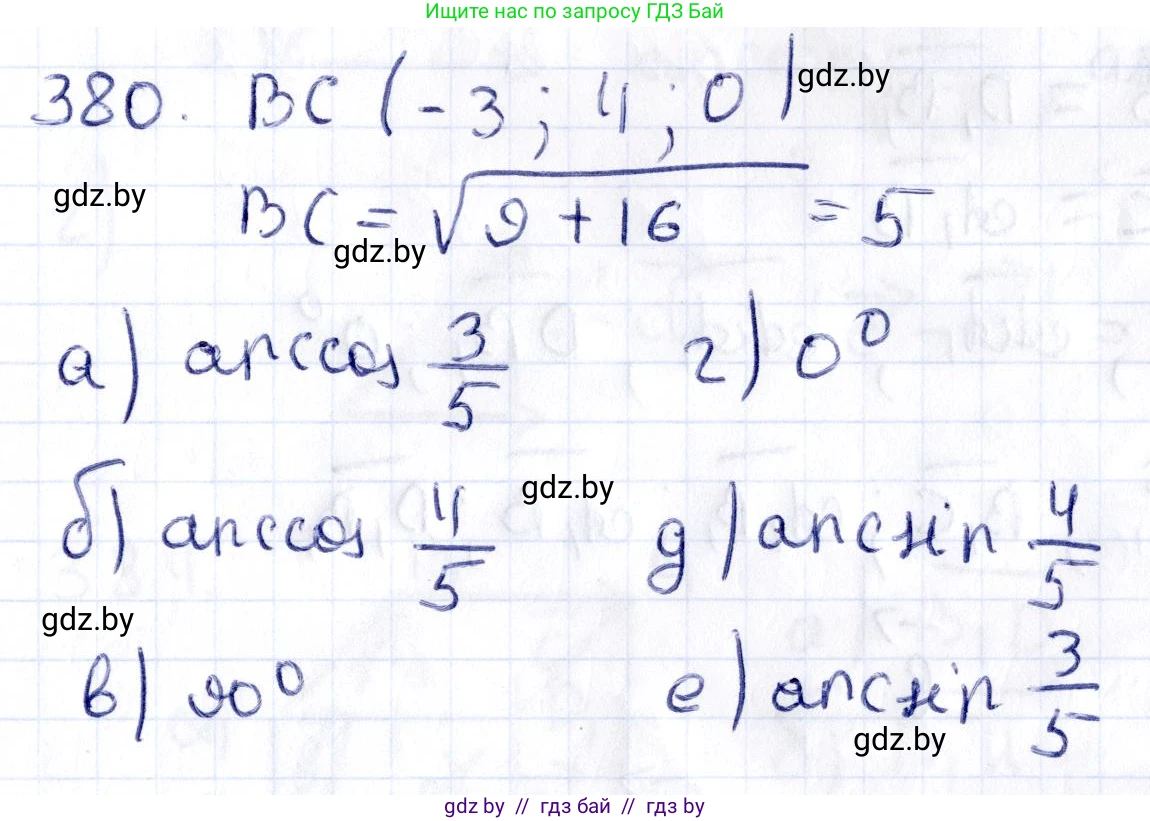 Ищите нас по запросу ГДЗ Бай
380. BC (-3; 4; 0) gdz.by
gdz.by
BC = √(9 + 16) = 5
gdz.by
а) arccos 3/5 г) 0⁰
б) arccos 4/5 gdz.by д) arcsin 4/5
gdz.by
в) 90⁰ е) arcsin 3/5
gdz.by
gdz.by // гдз бай // гдз by